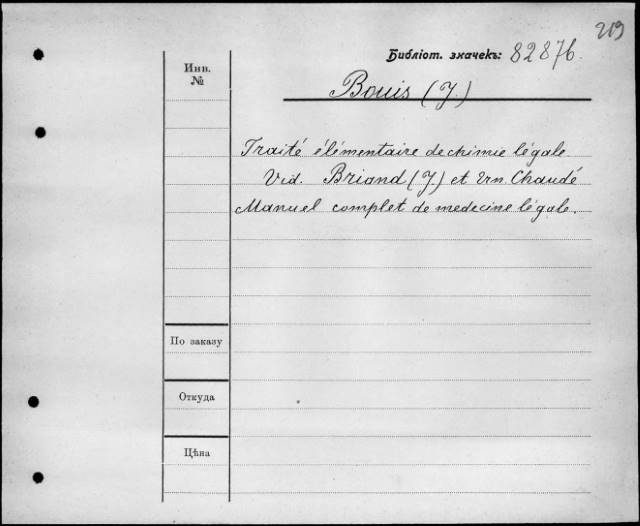 219
Библіот. значекъ: 82876.
Инв.
№
Bouis (J.)
Traité élémentaire de chimie légale
Vid. Briand (J.) et Ern. Chaudé
Manuel complet de medecine légale.
По заказу
Откуда
Цѣна